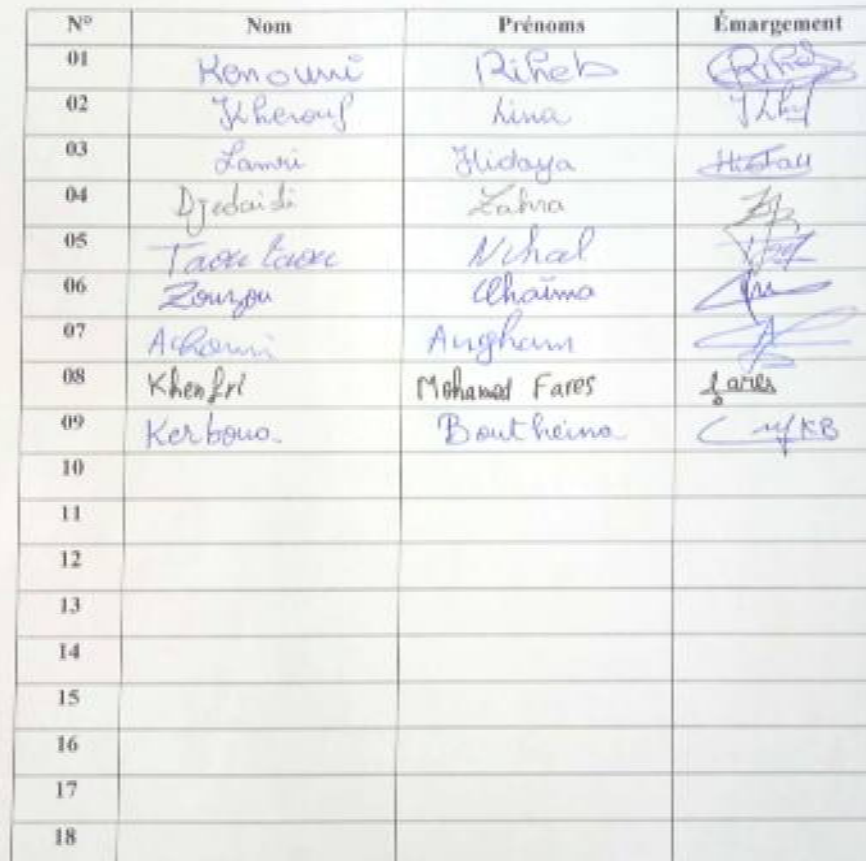 N° Nom Prénoms Émargement
01 Konouni Riheb Riheb
02 Kherouf Lina
03 Lamri Hidaya
04 Djedaidi Zahra
05 Taoutaou Nihal
06 Zouzou Chaïma
07 Achouri Angham
08 Khenfri Mohamed Fares fares
09 Kerboua Boutheina KB
10
11
12
13
14
15
16
17
18